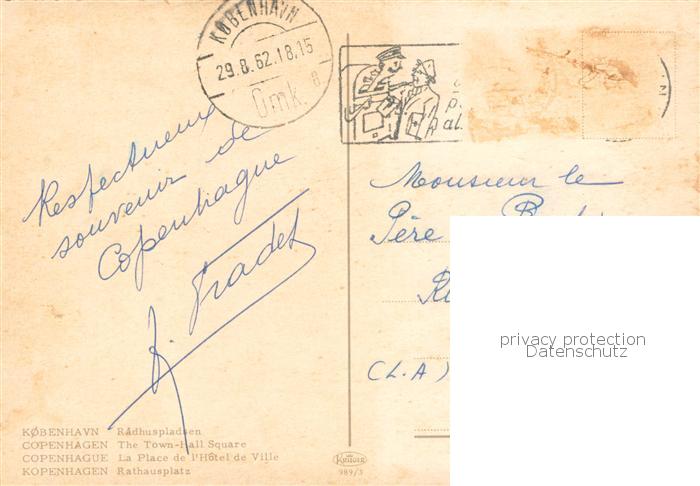 KØBENHAVN
29.8.62.18.15
Omk. 8
Respectueux
souvenir de
Copenhague
Monsieur le
Père
(L.A)
privacy protection
Datenschutz
KØBENHAVN Rådhuspladsen
COPENHAGEN The Town-Hall Square
COPENHAGUE La Place de l'Hôtel de Ville
KOPENHAGEN Rathausplatz
Krüger
989/3